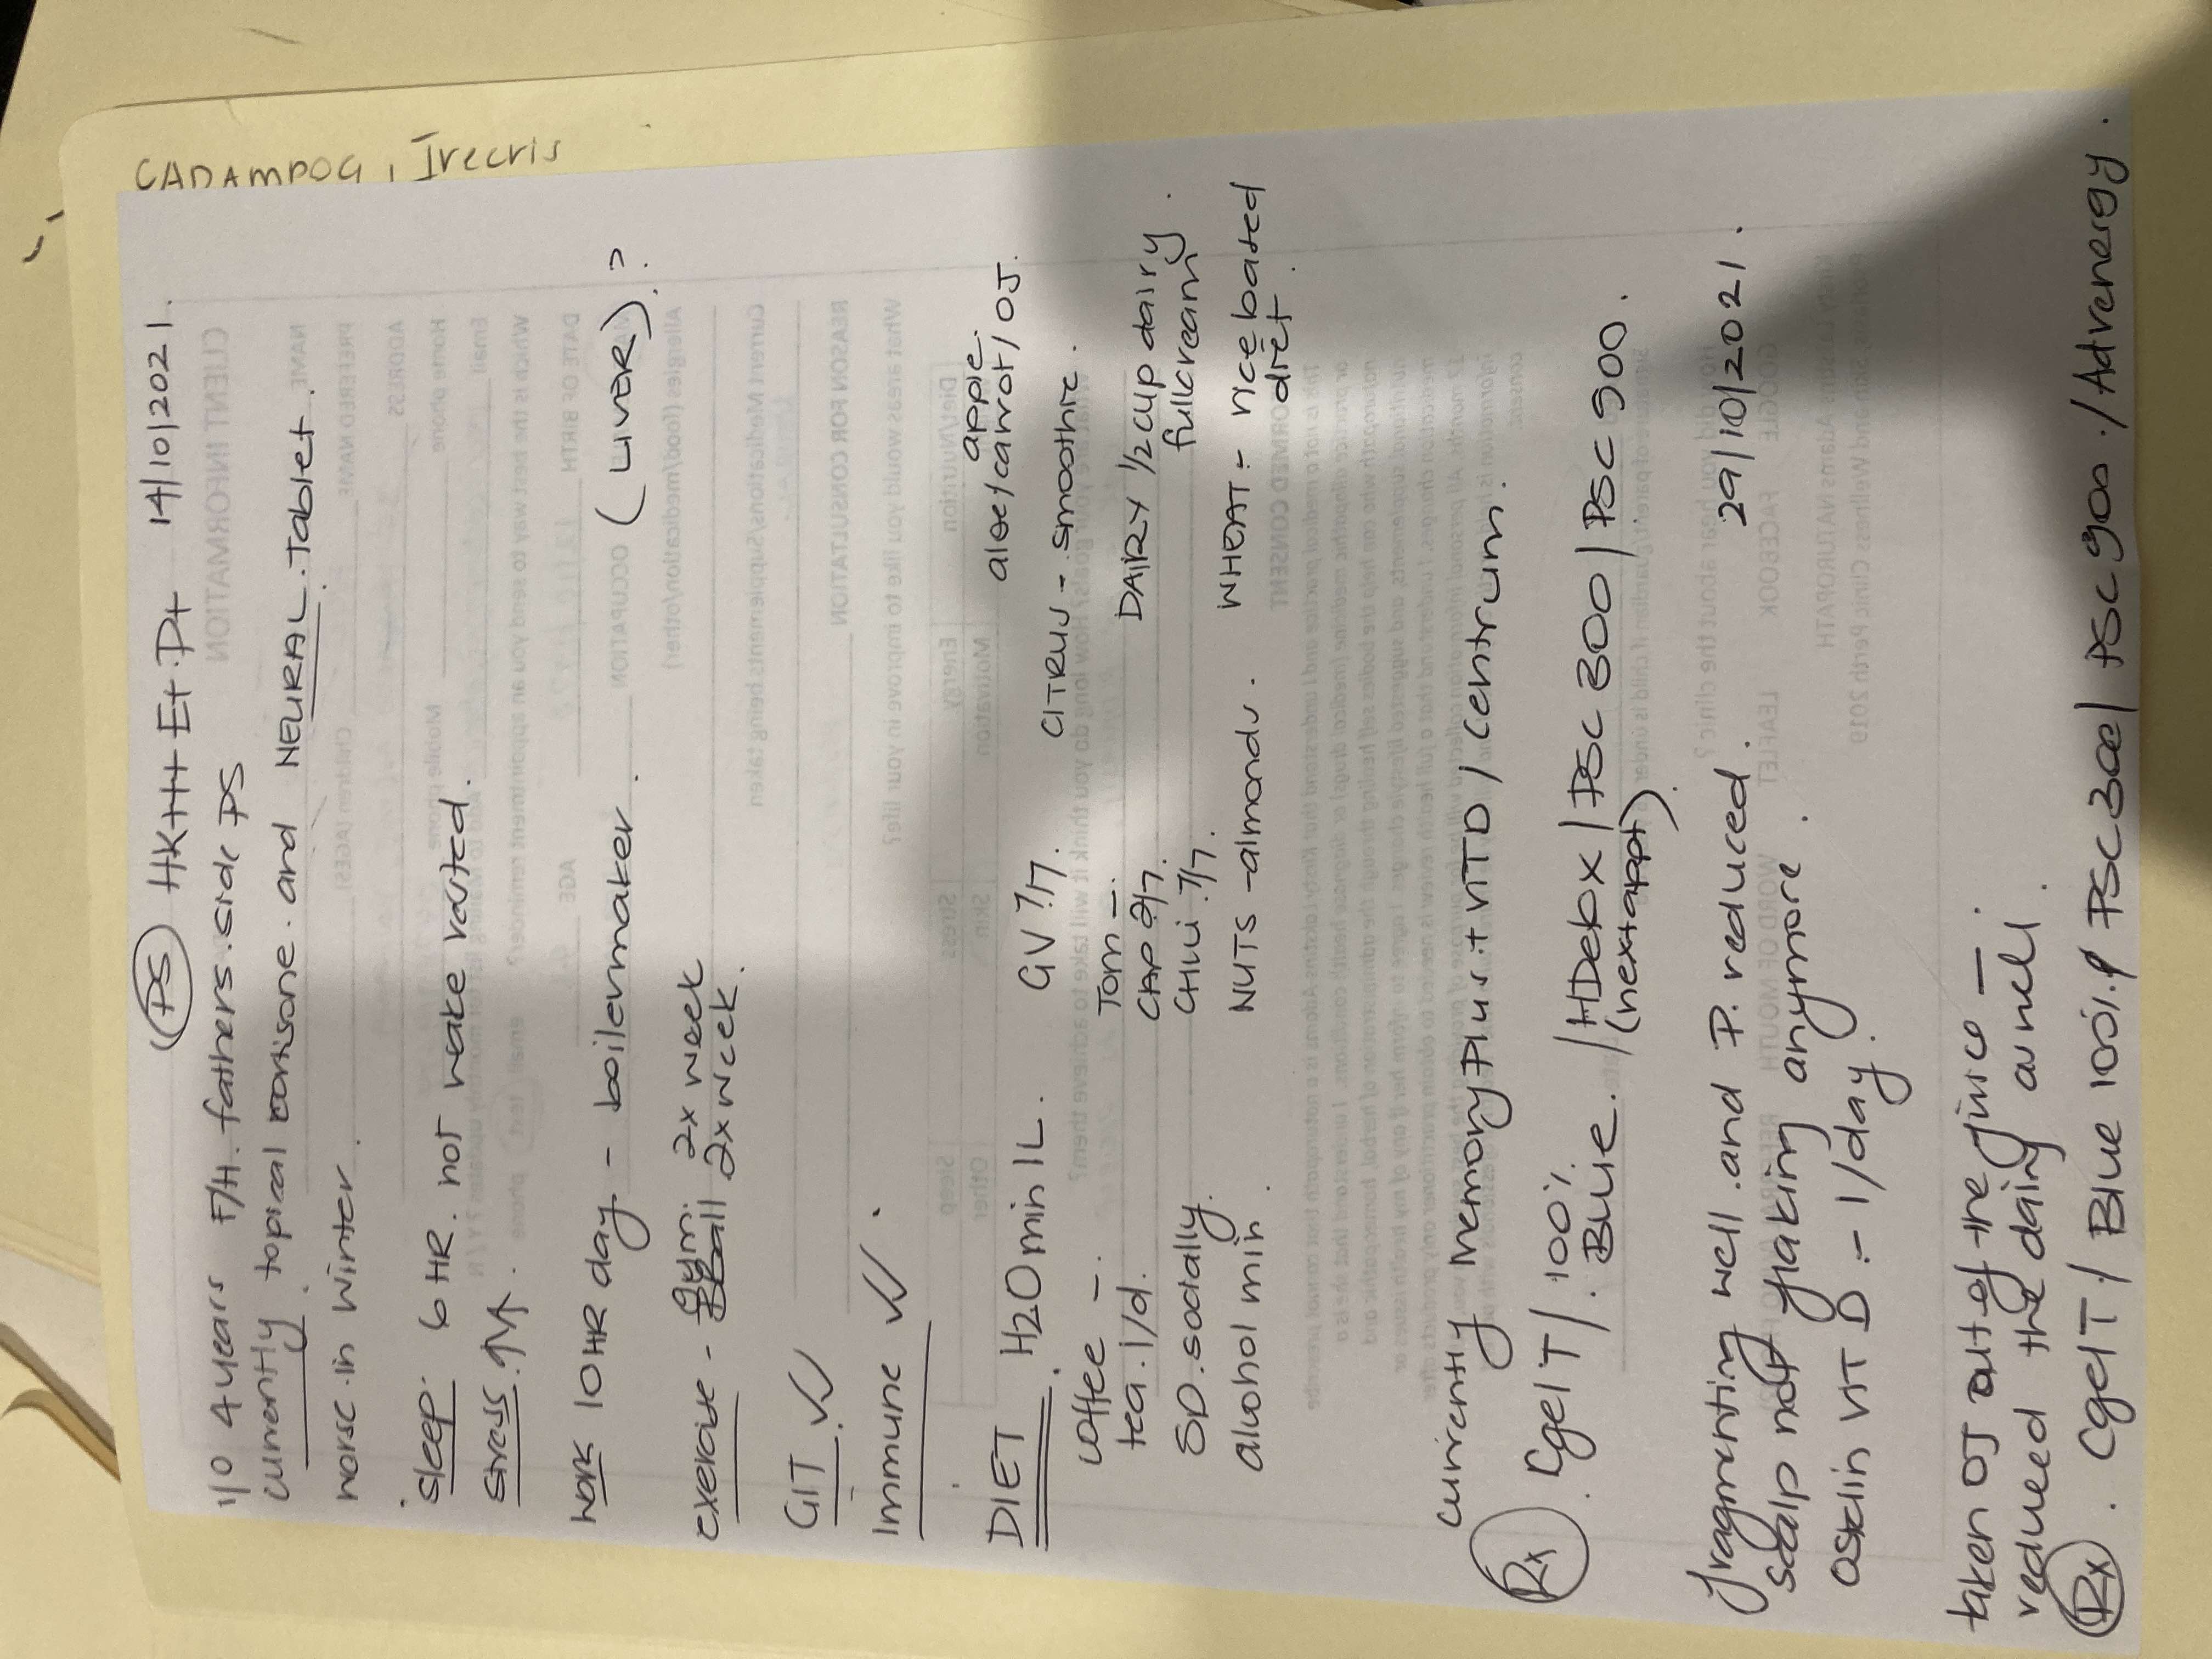 CADAMPOG, Irecris
PS HK+++ E+ P+ 14/10/2021.
4 years F/H. fathers side PS
currently topical cortisone. and NEURAL. Tablet.
worse in winter.
sleep. 6 HR. not wake rested.
stress.
work 10 HR day - boilermaker. (LIVER)?
exercise - gym. 2x week
2x week.
GIT ✓✓
Immune ✓✓.
DIET H2O min 1L. GV 7/7. aloe/carrot/OJ.
apple.
coffee -. Tom -. CITRUS - smoothie.
tea. 1/d. CAP 2/7. DAIRY 1/2 cup dairy
SD. socially. CHILLI 7/7. fullcream
alcohol min. NUTS - almonds. WHEAT:- rice based
diet.
currently memory plus. + VIT D / Centrum.
Rx. CgelT / 100% Blue. / HDetox / PSC 300 / PSC 900.
(next appt).
fragmenting well. and P. reduced. 29/10/2021.
scalp not flaking anymore.
VIT D :- 1/day.
taken OJ out of the juice -.
reduced the dairy as well.
Rx. CgelT / Blue 100% / PSC 300 / PSC 900. / Advenergy.